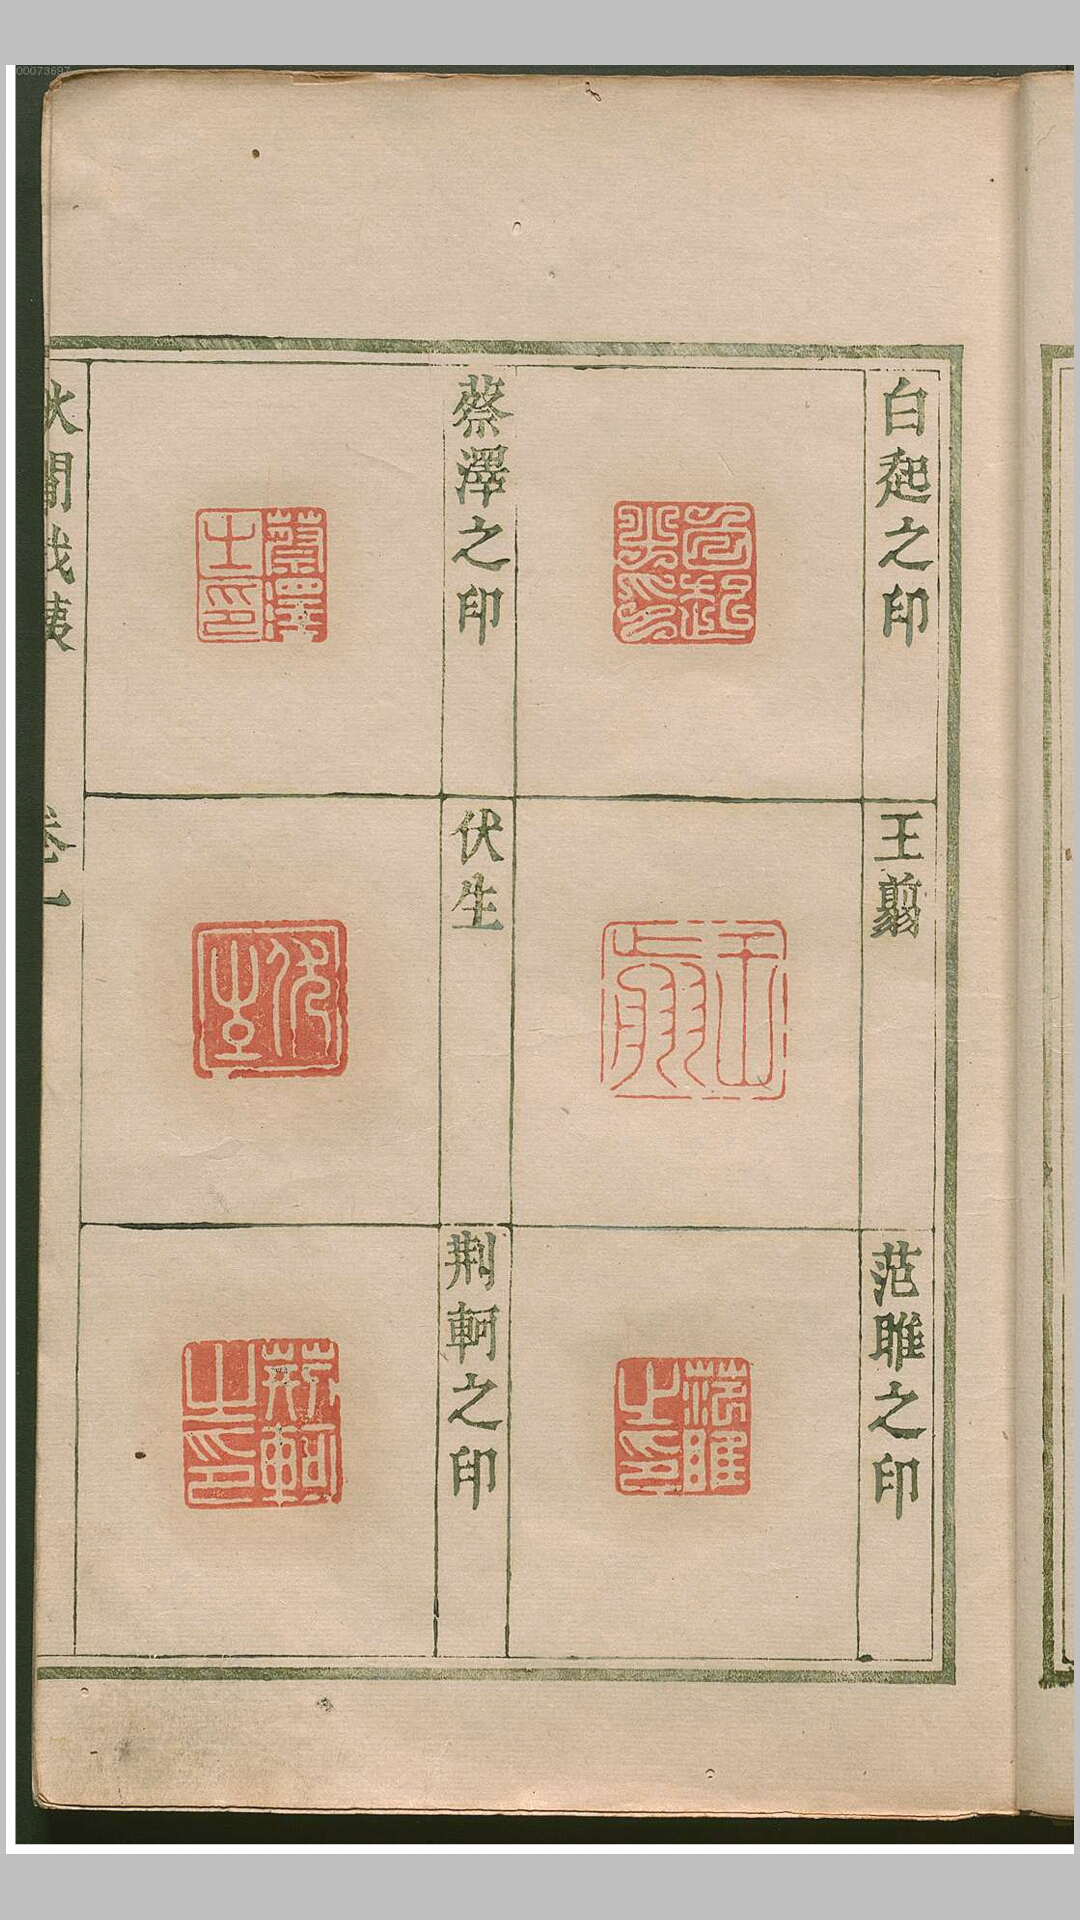 白起之印
王翦
范雎之印
蔡澤之印
伏生
荆軻之印
秋閒戲銕
卷一
00073697